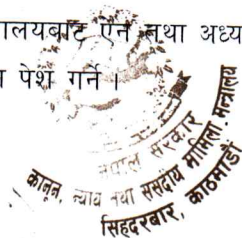 ालयबाट ऐन तथा अध्य
पेश गर्ने।
नेपाल सरकार
कानून, न्याय तथा संसदीय मामिला मन्त्रालय
सिंहदरबार, काठमाडौं